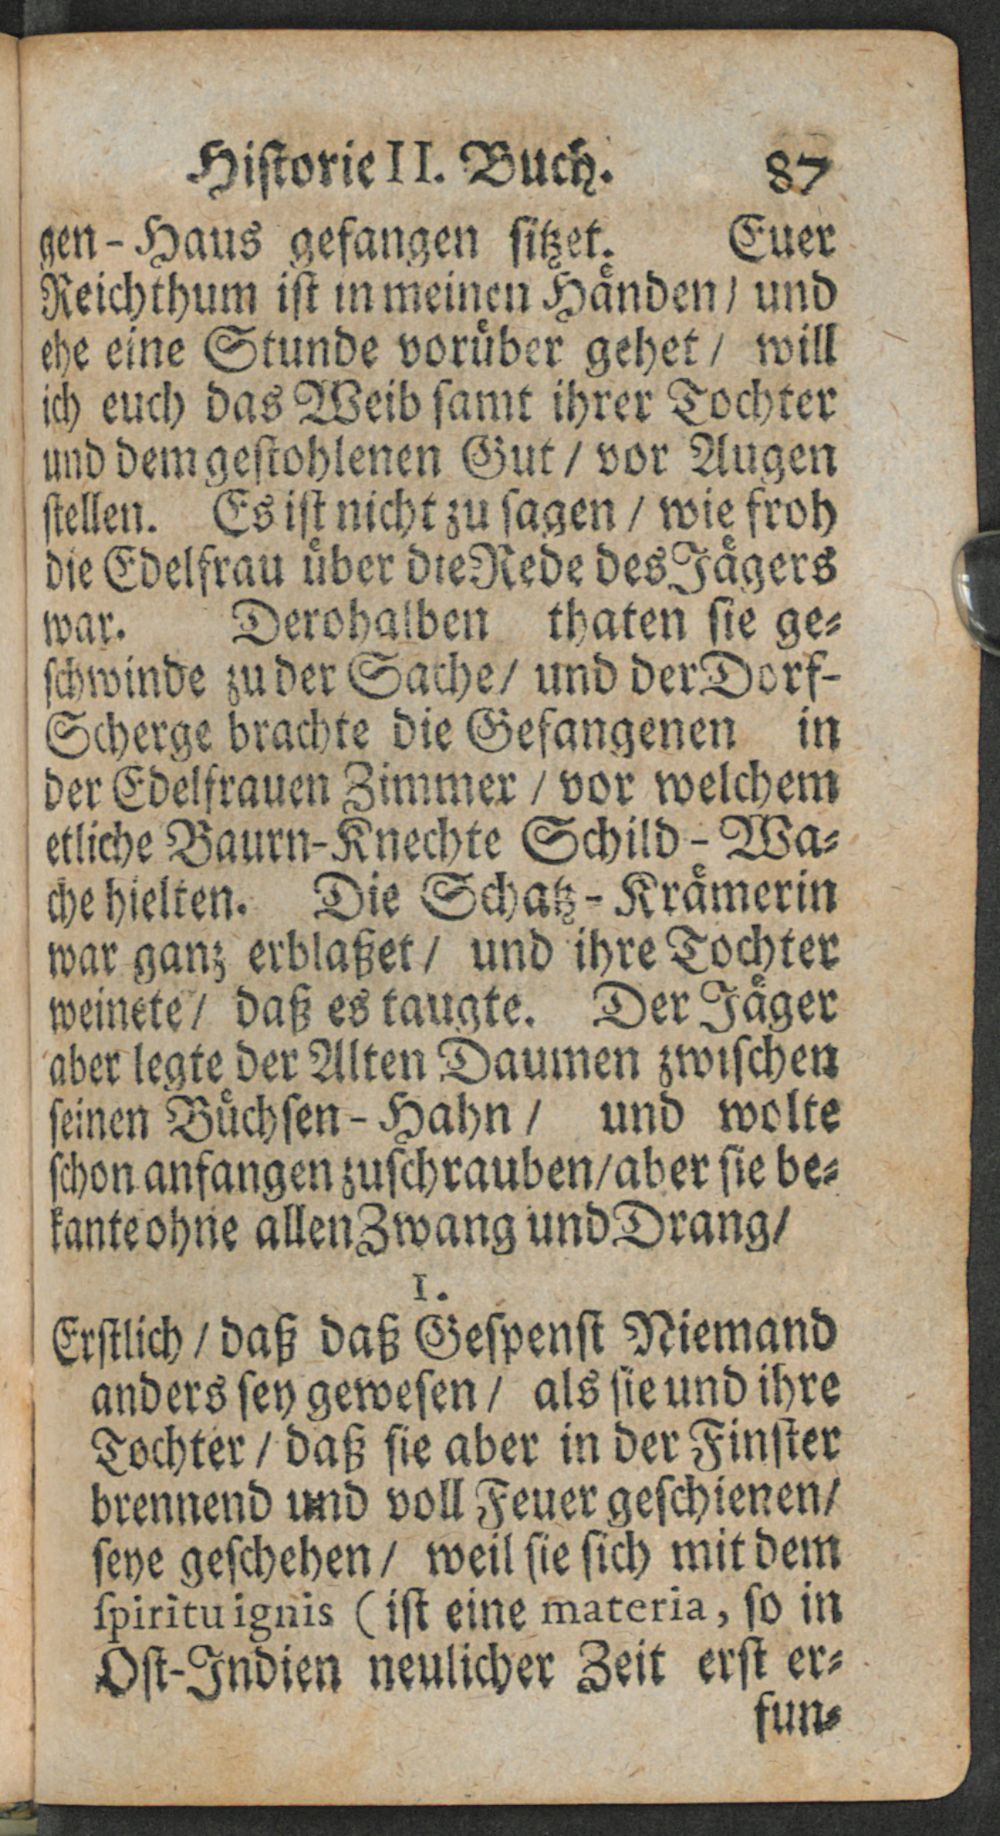 Historie II. Buch. 87
gen-Haus gefangen sitzet. Euer
Reichthum ist in meinen Händen/ und
ehe eine Stunde vorüber gehet/ will
ich euch das Weib samt ihrer Tochter
und dem gestohlenen Gut/ vor Augen
stellen. Es ist nicht zu sagen/ wie froh
die Edelfrau über die Rede des Jägers
war. Derohalben thaten sie ge-
schwinde zu der Sache/ und der Dorf-
Scherge brachte die Gefangenen in
der Edelfrauen Zimmer/ vor welchem
etliche Baurn-Knechte Schild-Wa-
che hielten. Die Schatz-Krämerin
war ganz erblaßet/ und ihre Tochter
weinete/ daß es taugte. Der Jäger
aber legte der Alten Daumen zwischen
seinen Büchsen-Hahn/ und wolte
schon anfangen zuschrauben/aber sie be-
kante ohne allen Zwang und Drang/
1.
Erstlich/ daß daß Gespenst Niemand
anders sey gewesen/ als sie und ihre
Tochter/ daß sie aber in der Finster
brennend und voll Feuer geschienen/
seye geschehen/ weil sie sich mit dem
spiritu ignis (ist eine materia, so in
Ost-Indien neulicher Zeit erst er-
fun-